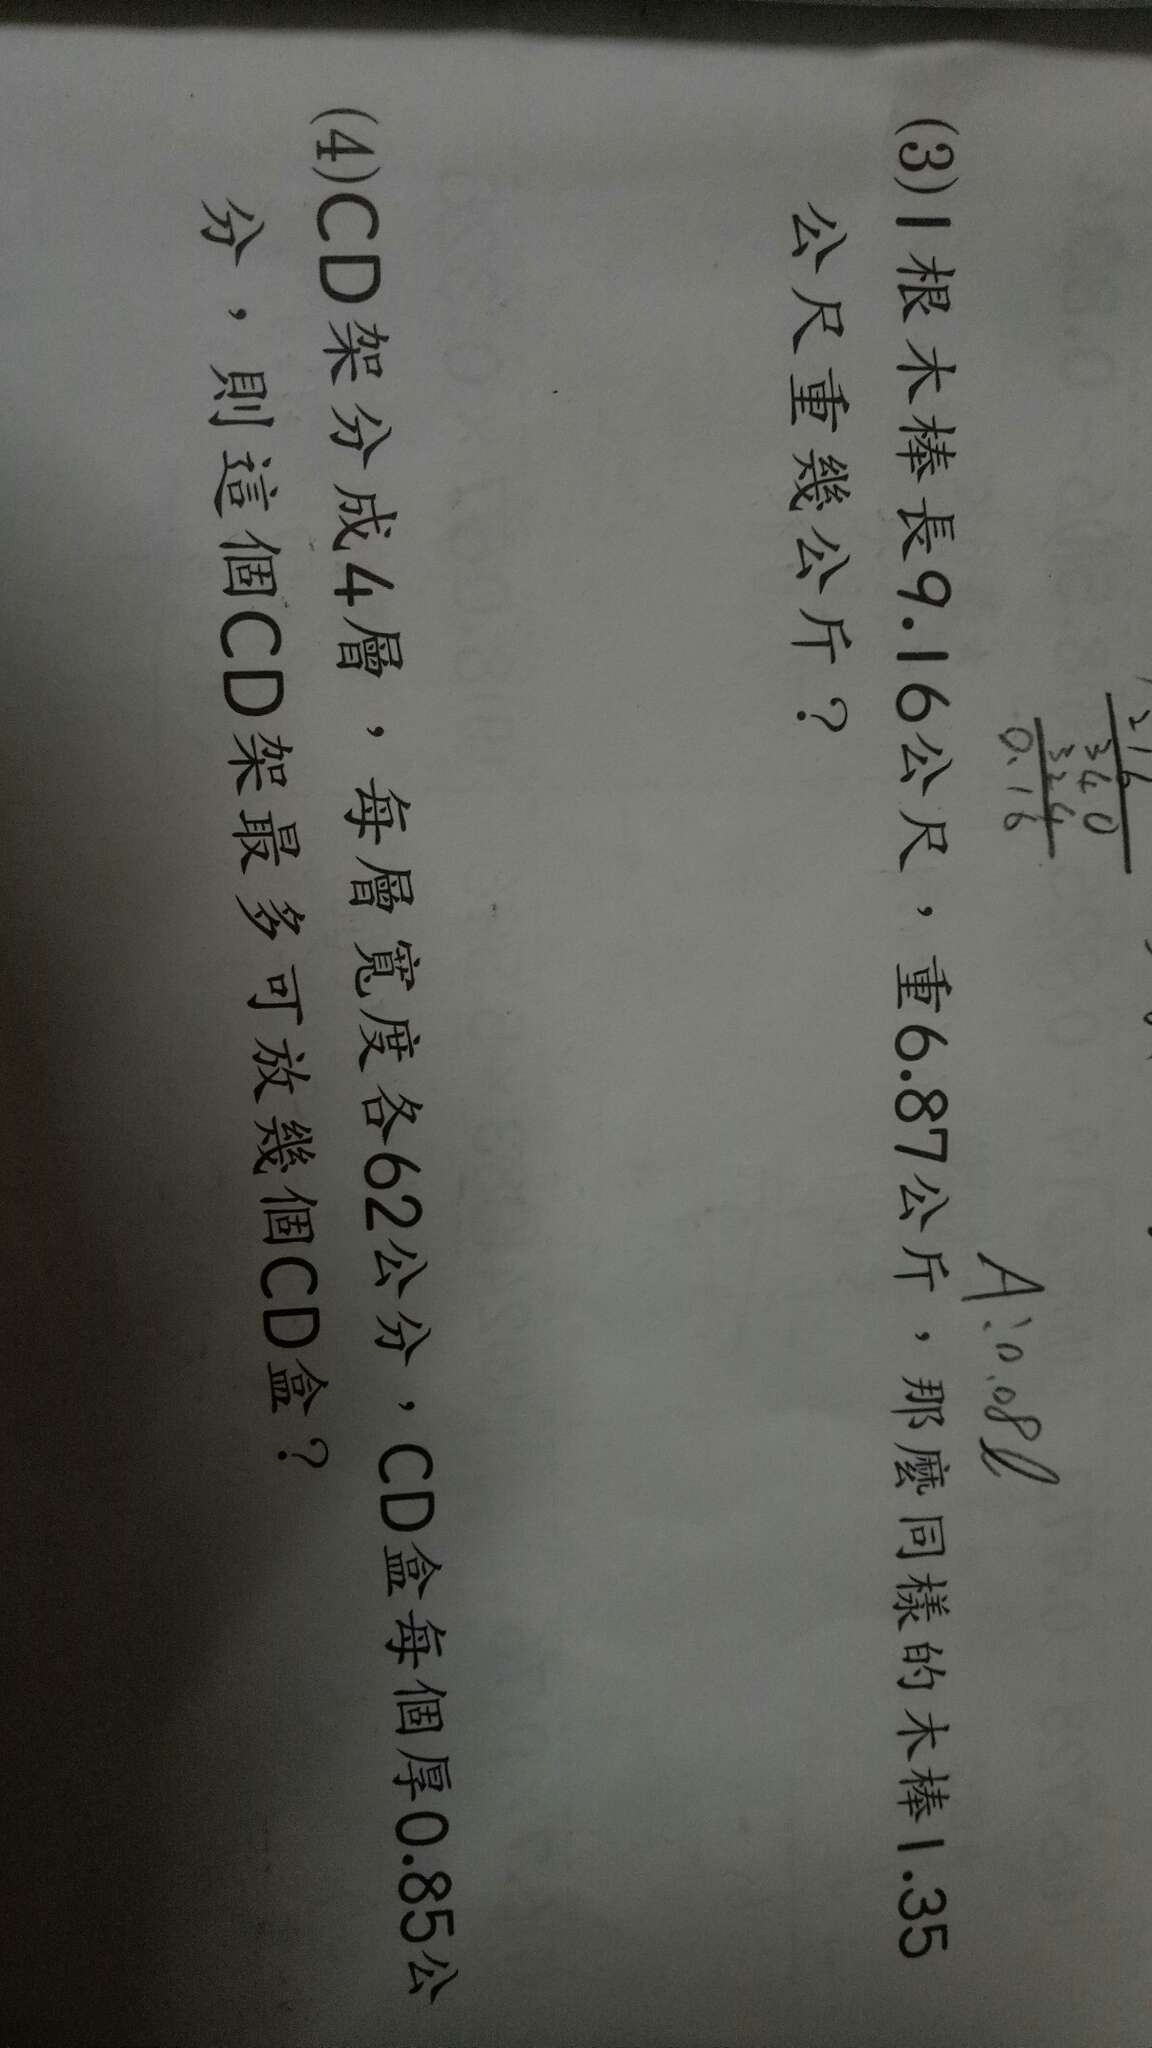 216
340
324
0.16
A:0.08l
(3)1根木棒長9.16公尺，重6.87公斤，那麼同樣的木棒1.35
公尺重幾公斤？
(4)CD架分成4層，每層寬度各62公分，CD盒每個厚0.85公
分，則這個CD架最多可放幾個CD盒？